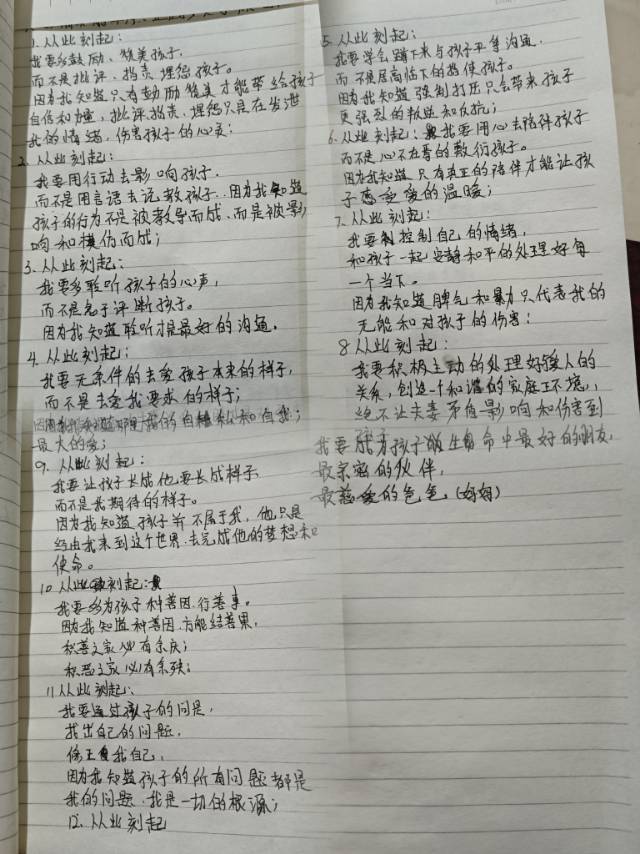 1. 从此刻起:
我要多鼓励、赞美孩子,
而不是批评、指责、埋怨孩子。
因为我知道只有鼓励赞美才能带给孩子
自信和力量,批评、指责、埋怨只是在发泄
我的情绪,伤害孩子的心灵;
2. 从此刻起:
我要用行动去影响孩子.
而不是用言语去说教孩子.因为我知道
孩子的行为不是被教导而成、而是被影
响和模仿而成;
3. 从此刻起:
我要多聆听孩子的心声,
而不是急于评断孩子。
因为我知道聆听才是最好的沟通。
4. 从此刻起:
我要无条件的去爱孩子本来的样子,
而不是去爱我要求的样子;
最大的爱;
9. 从此刻起:
我要让孩子长成他要长成样子
而不是我期待的样子。
因为我知道孩子并不属于我,他只是
经由我来到这个世界.去完成他的梦想和
使命。
10 从此刻起:
我要多为孩子种善因.行善事。
因为我知道种善因.方能结善果,
积善之家必有余庆;
积恶之家必有余殃;
11 从此刻起:
我要通过孩子的问是,
找出自己的问题,
修正我自己,
因为我知道孩子的所有问题都是
我的问题.我是一切的根源;
12. 从此刻起
5. 从此刻起:
我要学会蹲下来与孩子平等沟通.
而不是居高临下的指使孩子。
因为我知道强制打压只会带来孩子
更强烈的叛逆和反抗;
6. 从此刻起:我要用心去陪伴孩子
而不是心不在焉的敷衍孩子。
因为我知道只有真正的陪伴才能让孩
子感受爱的温暖;
7. 从此刻起:
我要控制自己的情绪,
和孩子一起安静和平的处理好每
一个当下。
因为我知道脾气和暴力只代表我的
无能和对孩子的伤害:
8 从此刻起:
我要积极主动的处理好家人的
关系,创造一个和谐的家庭环境,
绝不让夫妻矛盾影响和伤害到
我要成为孩子生命中最好的朋友,
最亲密的伙伴,
最慈爱的爸爸.(妈妈)